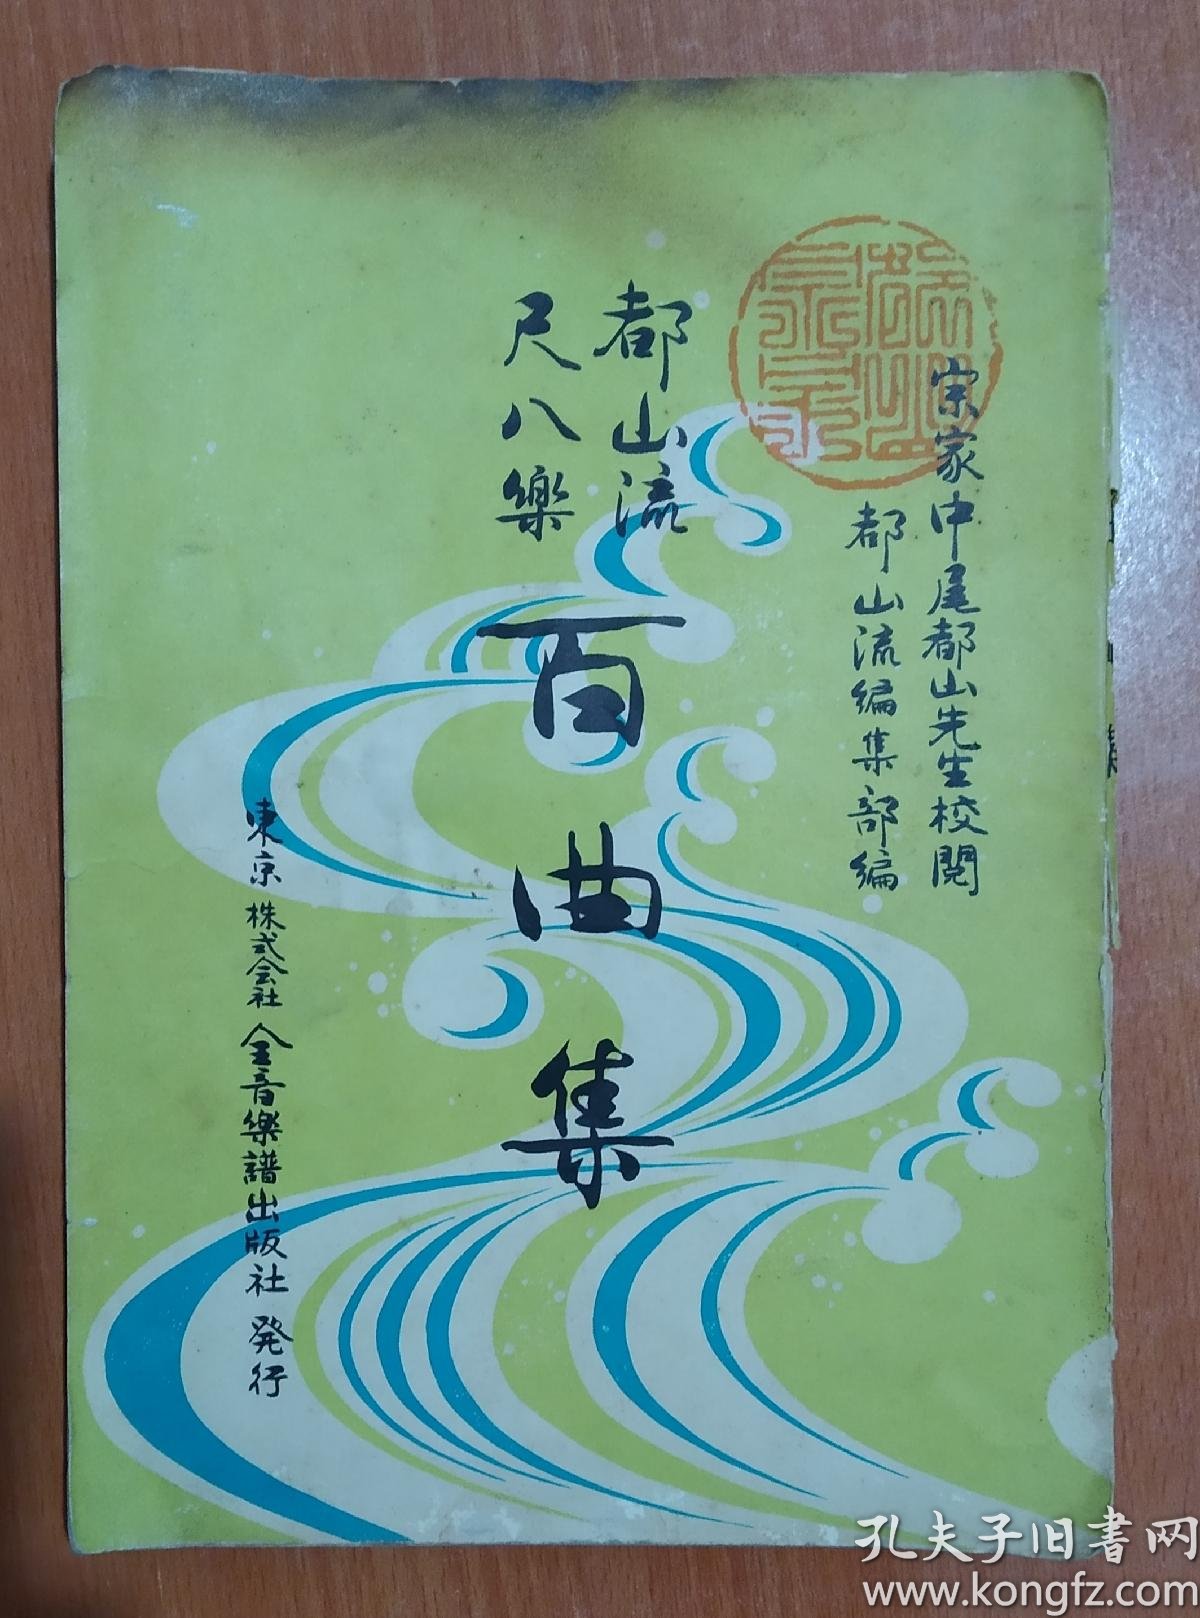 宗家中尾都山先生校閲
都山流編集部編
都山流
尺八樂
百曲集
東京 株式会社 全音樂譜出版社 発行
孔夫子旧書网
www.kongfz.com